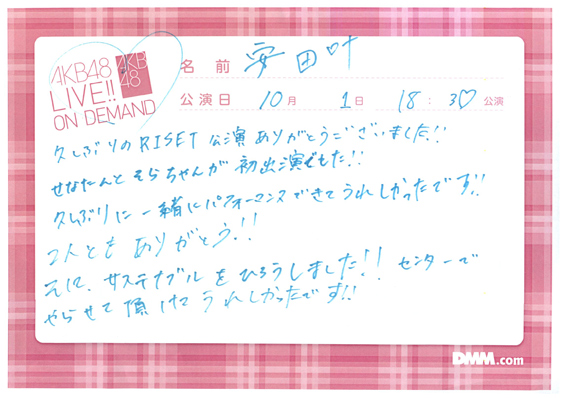 AKB48
LIVE!!
ON DEMAND
AKB
48
名 前 安田叶
公演日 10月 1日 18:30公演
久しぶりのRISET公演ありがとうございました!!
せなたんとそらちゃんが初出演でした!!
久しぶりに一緒にパフォーマンスできてうれしかったです!!
2人ともありがとう!!
元に、サステナブルをひろうしました!! センターで
やらせて頂けてうれしかったです!!
DMM.com